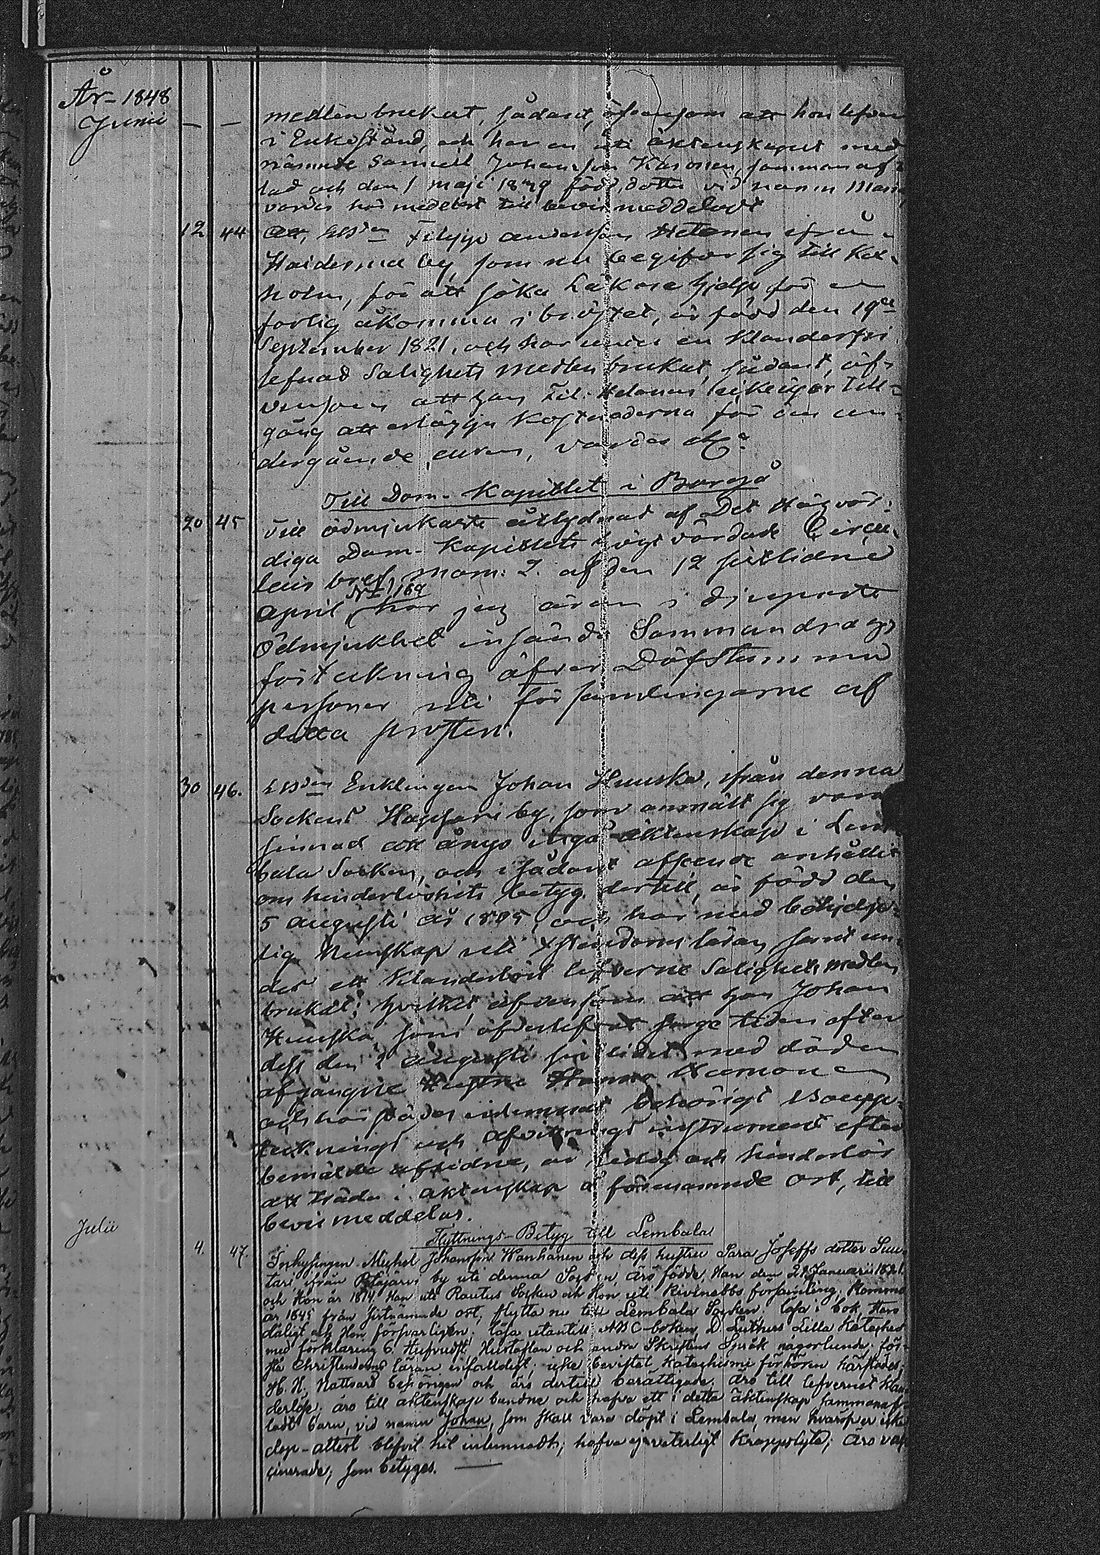 År 1848
Junii — — medlen brukat, sådant, äfvensom att hon lefver
i Enkestånd, och har en uti äktenskapet med
nämnde Samuel Johansson Kasonen sammanaf-
lad och den 1 maji 1839 född dotter vid namn Maria
varder härmedelst till bevis meddeladt
12 44 Att, Filipp Andersson Hetonen ifrån
by, som nu begifver sig till Kex-
holm, för att söka Läkare hjelp för en
farlig åkomma i bröstet, är född den 19de
September 1821, och har under en klanderfri
lefnad Salighets medlen brukat, sådant, äf-
vensom att han Fil. Hetonen icke äger till-
gång att erlägga kostnaderna för den un-
dergående curen, varder &c.
Till Dom-Kapitlet i Borgå
20 45 Till ödmjukaste åtlydnad af Det Högvör-
diga Dom-Kapitlets högt vördade Circu-
lair bref mom: 2. af den 12 sistlidne
April No 189 har jag äran i djupaste
Ödmjukhet insända Sammandrags
förteckning öfver Döfstumma
personer uti församlingarne af
detta prosteri.
30 46. Enklingen Johan Huuska, ifrån denna
Sockens by, som anmält sig vara
sinnad att ånyo ingå äktenskap i Lem-
bala Socken, och i sådant afseende anhållit
om hinderlöshets betyg dertill, är född den
5 Augusti år 1805, och har med behöflig
kunskap uti Christendoms läran samt un-
der ett klanderlöst lefverne Salighets medlen
brukat; hvilket, äfvensom att han Johan
Huuska, som öfverlefvat sorge tiden efter
dess den 2 Augusti sistlidet med döden
afgångne Hustru Kemonen
och härstädes inlemnat behörigt Boupp-
tecknings och afvittrings instrument efter
bemälde aflidne, är ledig och hinderlös
att träda i äktenskap å förenämnde ort, till
bevis meddelas.
Flyttnings-Betyg till Lembala
Julii 4. 47. Inhysingen Michel Johansson Hanhinen och dess hustru Sara Josefs dotter Suu-
tari ifrån by uti denna Socken, äro födde, Han den 21 Januarii 1821
och Hon år 1814, Han uti Rautus Socken och Hon uti Kivinebbs församling, Komma
år 1845 från sistnämnde ort, flytta nu till Lembala Socken, läsa i bok, Han
dåligt och Hon försvarligen; läsa utantill ABC-boken, D. Luthers Lilla Kateches
med förklaring, C. Hufvudst. Hustaflan och andra Skriftens Språk någorlunda; för-
stå Christendoms läran enfaldigt; icke bevistat Katechismi förhören härstädes;
H. H. Nattvard begången och äro dertill berättigade, äro till lefvernet klan-
derlöse, äro till äktenskap bundne och hafva ett i detta äktenskap sammanaf-
ladt barn, vid namn Johan, som skall vara döpt i Lembala, men hvaröfver icke
dop-attest blifvit hit inlemnadt; hafva ej veterligt kroppslyte; äro vac-
cinerade; som betygas. —